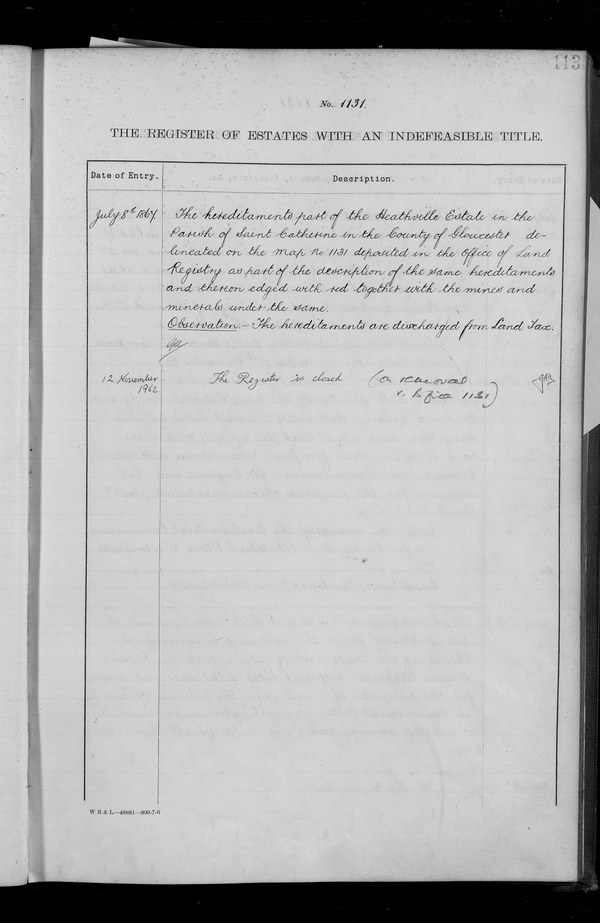 113
No. 1131.
THE REGISTER OF ESTATES WITH AN INDEFEASIBLE TITLE.
Date of Entry.
Description.
July 8th 1867
The hereditaments part of the Heathville Estate in the
Parish of Saint Catherine in the County of Gloucester de-
lineated on the Map No 1131 deposited in the Office of Land
Registry as part of the description of the same hereditaments
and thereon edged with red together with the mines and
minerals under the same.
Observation:- The hereditaments are discharged from Land Tax.
12 November
1962
The Register is closed (on removal
1131)
W B & L—48881—800-7-6